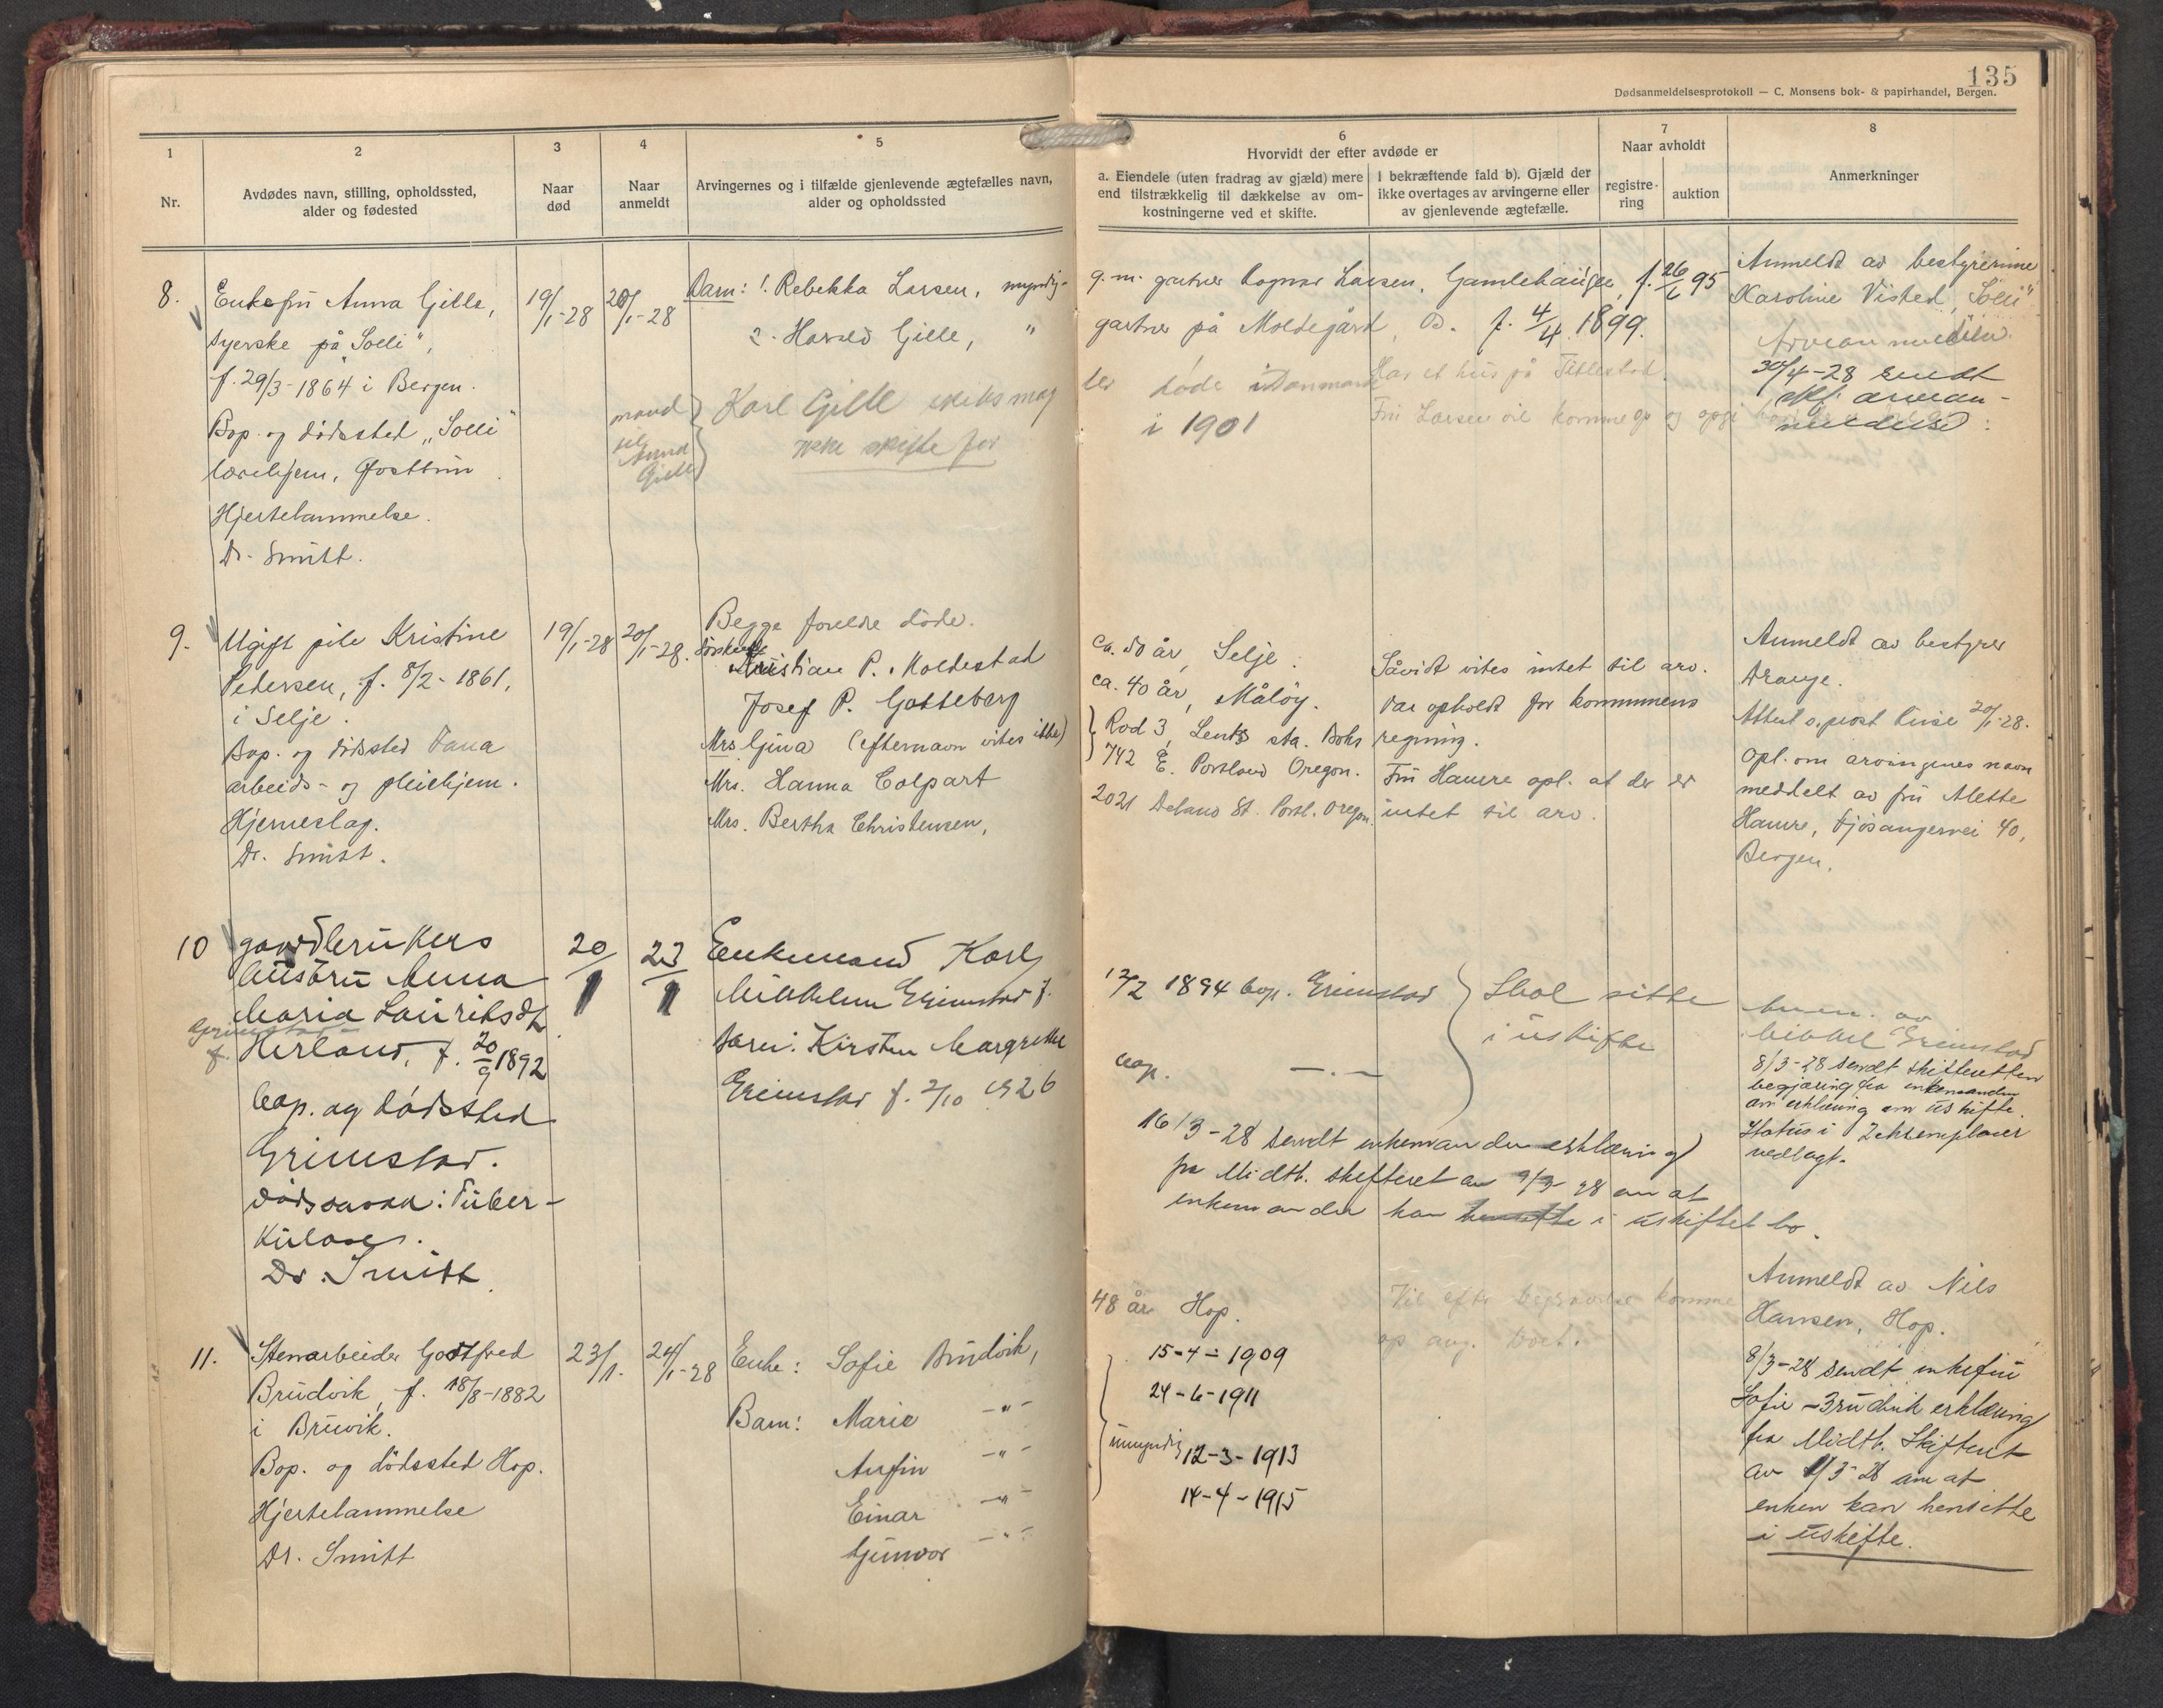 135
Dødsanmeldelsesprotokoll — C. Monsens bok- & papirhandel, Bergen.
1
Nr.
2
Avdødes navn, stilling, opholdssted,
alder og fødested
3
Naar
død
4
Naar
anmeldt
5
Arvingernes og i tilfælde gjenlevende ægtefælles navn,
alder og opholdssted
6
Hvorvidt der efter avdøde er
a. Eiendele (uten fradrag av gjæld) mere
end tilstrækkelig til dækkelse av om-
kostningerne ved et skifte.
I bekræftende fald b). Gjæld der
ikke overtages av arvingerne eller
av gjenlevende ægtefælle.
7
Naar avholdt
registre-
ring
auktion
8
Anmerkninger
8.
Enkefru Anna Gille,
syerske på "Solli",
f. 29/3-1864 i Bergen.
Bop. og dødssted "Solli"
lærehjem, Fjøsthun
Hjertelammelse.
Dr. Smitt.
19/1-28
20/1-28
Barn: 1. Rebekka Larsen, myndig-
2. Harald Gille, "
mand
til
Anna
Gille
Karl Gille
ikke skifte for
g.m. gartner Ragnar Larsen, Gamlehaugen, f. 26/6 95
gartner på Moldegård, O. f. 4/4 1899.
døde i Danmark
i 1901
Har et hus på
Fru Larsen vil komme op og opgi
Anmeldt av bestyrerinne
Karoline Visted, "Solli"
30/4-28 sendt
skf. arvean-
meldelse
9.
Ugift pike Kristine
Petersen, f. 8/2-1861,
i Selje.
Bop. og dødssted Fana
arbeids- og pleiehjem.
Hjerneslag.
Dr. Smitt.
19/1-28
20/1-28.
Begge foreldre døde.
Søsken
Kristian P. Moldestad
Josef P. Gotteberg
Mrs Gina (efternavn vites ikke)
Mrs. Hanna Colpart
Mrs. Bertha Christensen,
ca. 50 år, Selje.
ca. 40 år, Måløy.
Rod 3, Lents sta. Boks
742 E. Portland Oregon.
2021 Deland St. Portl. Oregon.
Såvidt vites intet til arv.
Var opholdt for kommunens
regning.
Fru Hamre opl. at der er
intet til arv.
Anmeldt av bestyrer
Drange.
Attest s.prost 20/1-28.
Opl. om arvingenes navn
meddelt av fru Alette
Hamre, Fjøsangervei 40,
Bergen.
10
gaardbrukers
hustru Anna
Maria Lauritsdt
Grimstad
f. Herland, f. 20/9 1892
bop. og dødssted
Grimstad.
dødsaarsak: Tuber-
kulose.
Dr. Smitt.
20/1
23/1
Enkemand Karl
Mikkelsen Grimstad f.
barn: Kirsten Margrethe
Grimstad f. 2/10 1926
12/2 1894 bop. Grimstad
bop. —.—
Skal sitte
i uskifte
anm. av
Mikkel Grimstad
8/3-28 sendt skifteretten
begjæring fra enkemanden
om erklæring om uskifte.
Status i 2 eksemplarer
vedlagt.
16/3-28 sendt enkemanden erklæring
fra Midth. skifteret av 9/3-28 om at
enkemanden kan hensitte i uskiftet bo.
11.
Stenarbeider Godtfred
Brudvik, f. 18/8-1882
i Bruvik.
Bop. og dødssted Hop.
Hjertelammelse
Dr. Smitt
23/1.
24/1-28
Enke: Sofie Brudvik,
Barn: Marie -"-
Arnfin -"-
Einar -"-
Gunvor -"-
48 år Hop.
15-4-1909
24-6-1911
umyndig 12-3-1913
14-4-1915
Vil efter begravelse komme
op ang. boet.
Anmeldt av Nils
Hansen, Hop.
8/3-28 sendt enkefru
Sofie Brudvik erklæring
fra Midth. Skifteret
av 1/3-28 om at
enken kan hensitte
i uskifte.